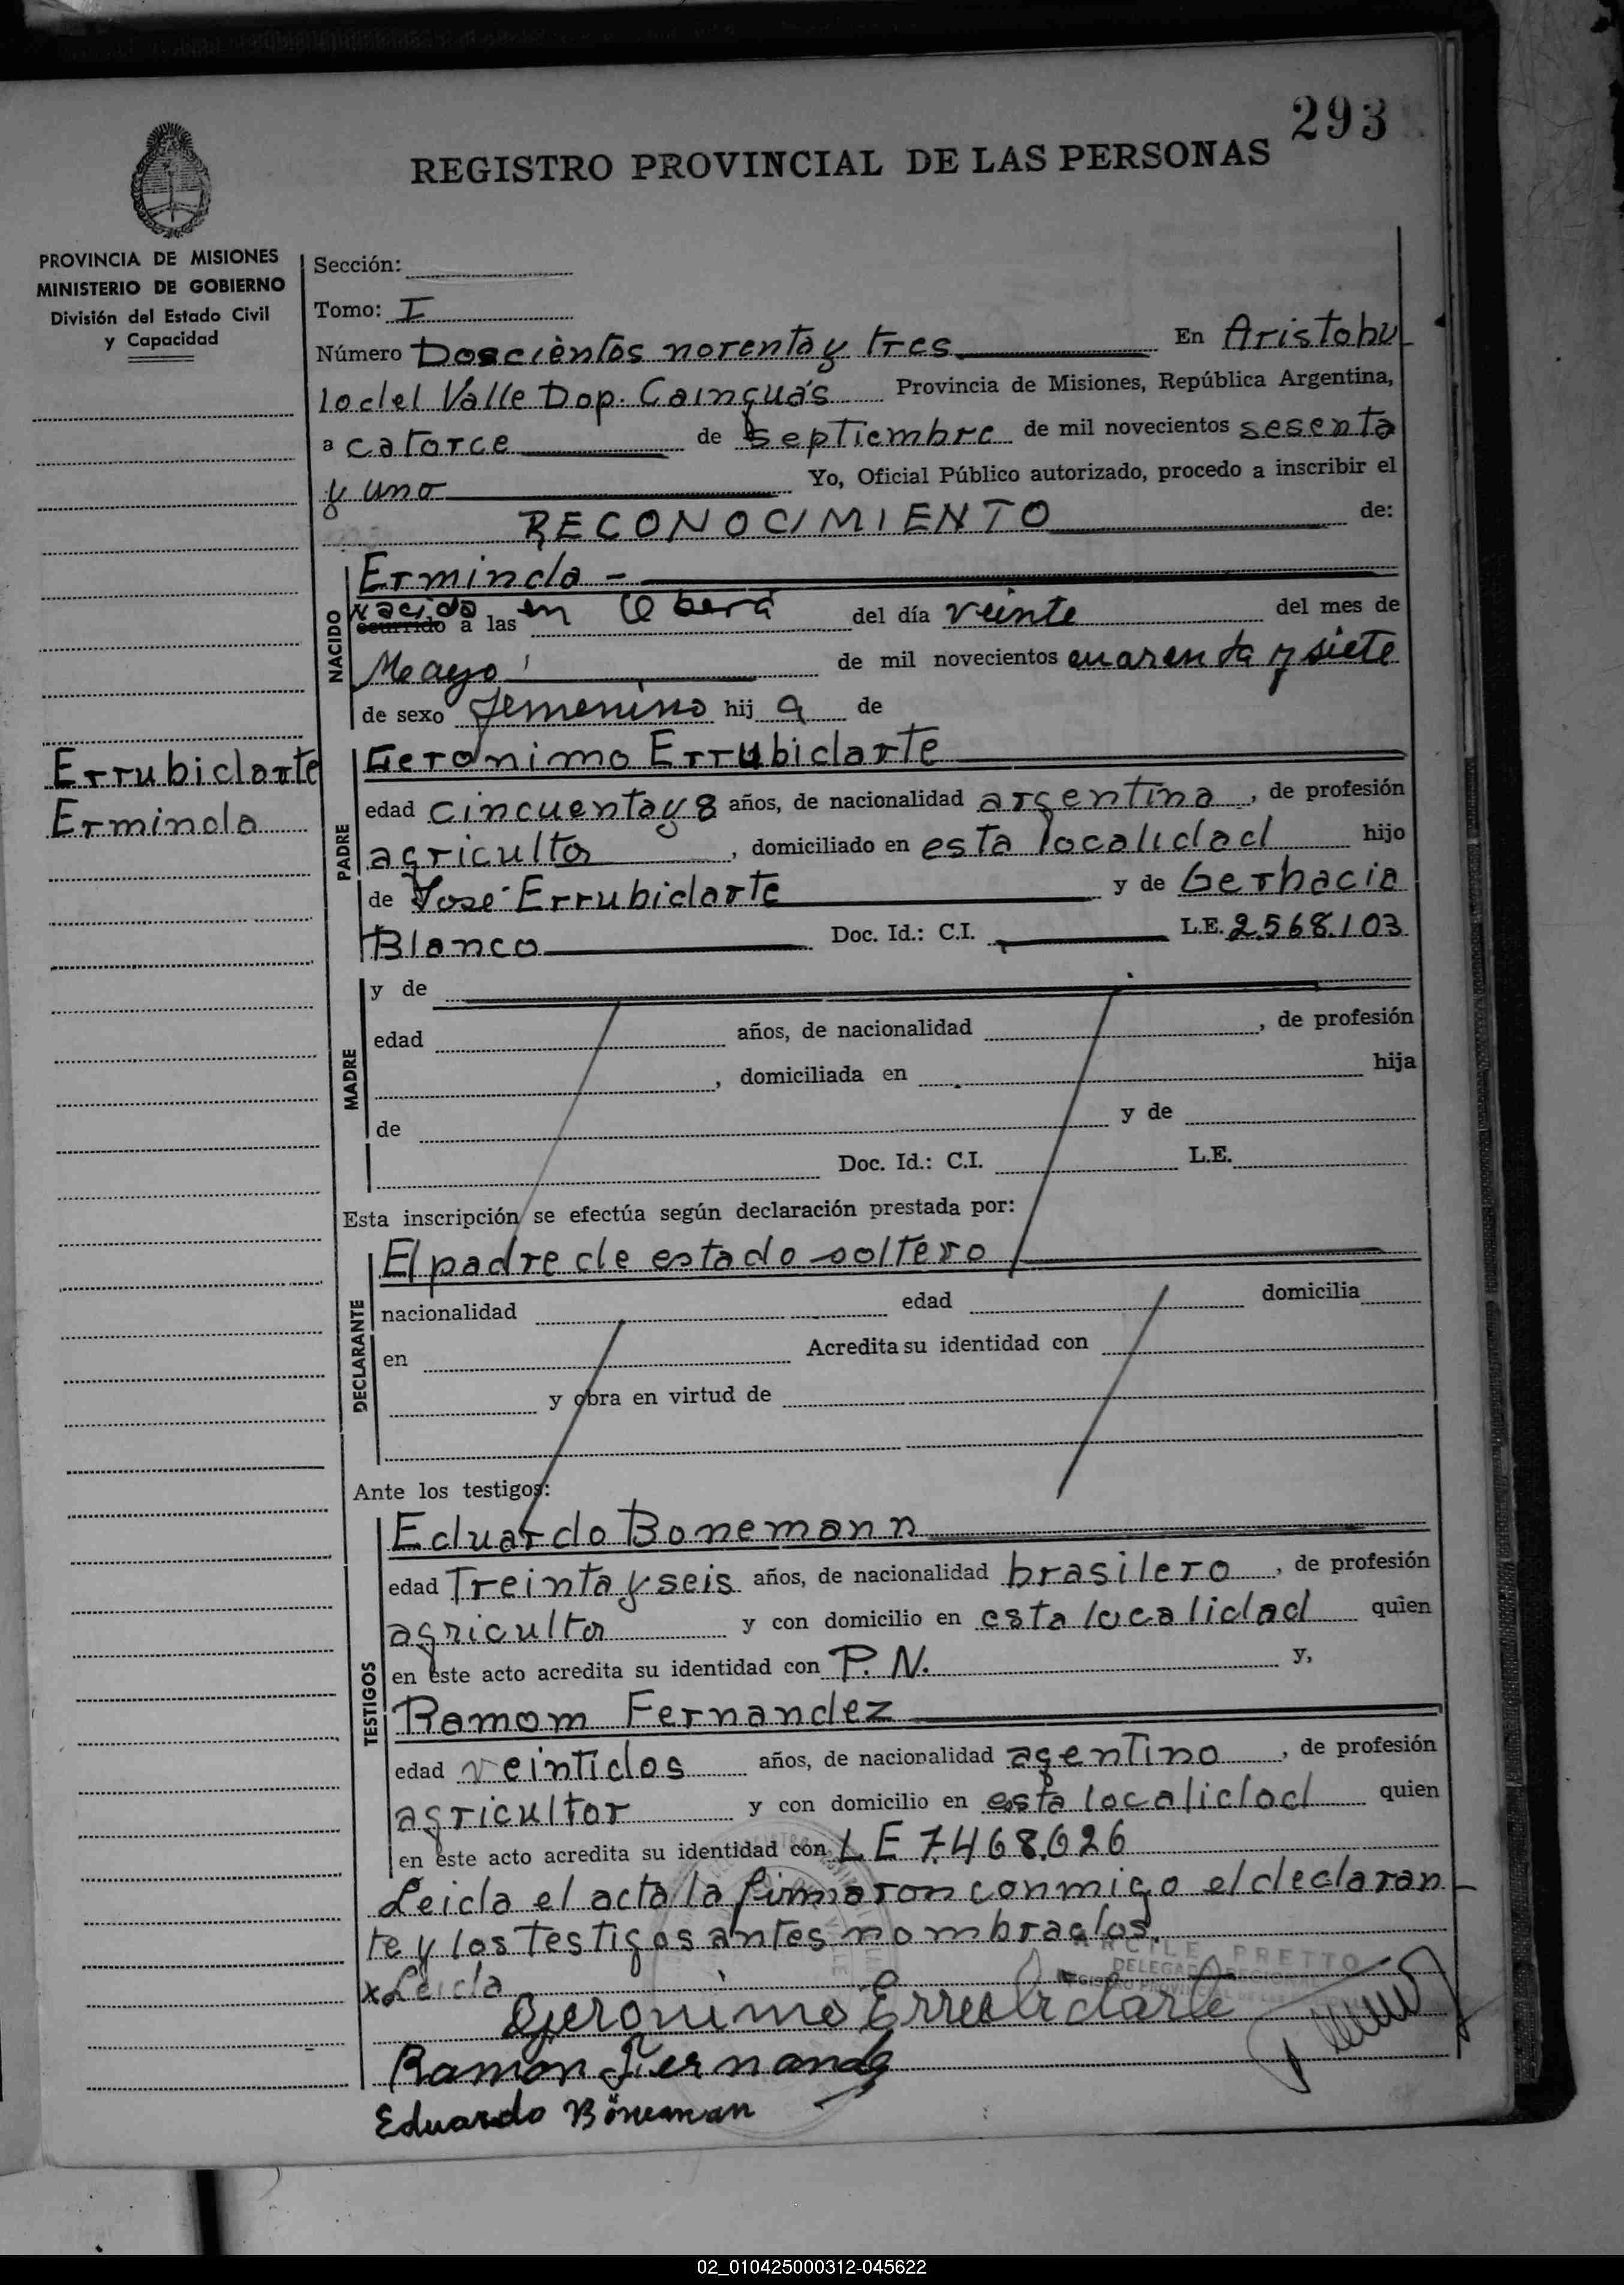 293
REGISTRO PROVINCIAL DE LAS PERSONAS
PROVINCIA DE MISIONES
MINISTERIO DE GOBIERNO
División del Estado Civil
y Capacidad
Sección:
Tomo: I
Número Doscièntos noventa y tres En Aristobu
lo del Valle Dop. Cainguás Provincia de Misiones, República Argentina,
a catorce de septiembre de mil novecientos sesenta
y uno Yo, Oficial Público autorizado, procedo a inscribir el
RECONOCIMIENTO de:
NACIDO
Erminda -
nacida
ocurrido a las en Oberá del día veinte del mes de
Mayo de mil novecientos cuarenta y siete
de sexo femenino hij a de
Errubidarte
Erminda
PADRE
Geronimo Errubidarte
edad cincuenta y 8 años, de nacionalidad argentina, de profesión
agricultor, domiciliado en esta localidad hijo
de José Errubidarte y de Gerbacia
Blanco Doc. Id.: C.I. L.E. 2.568.103
MADRE
y de
edad años, de nacionalidad , de profesión
, domiciliada en hija
de y de
Doc. Id.: C.I. L.E.
Esta inscripción se efectúa según declaración prestada por:
DECLARANTE
El padre de estado soltero
nacionalidad edad domicilia
en Acredita su identidad con
y obra en virtud de
Ante los testigos:
TESTIGOS
Eduardo Bonemann
edad Treinta y seis años, de nacionalidad brasilero, de profesión
agricultor y con domicilio en esta localidad quien
en este acto acredita su identidad con P. N. y,
Ramom Fernandez
edad veintidos años, de nacionalidad agentino, de profesión
agricultor y con domicilio en esta localidad quien
en este acto acredita su identidad con L E 7.468.626
Leida el acta la firmaron conmigo el declaran
te y los testigos antes nombrados.
x Leida
ARCILE PRETTO
DELEGADO REGIONAL
REGISTRO PROVINCIAL DE LAS PERSONAS
Geronimo Errubidarte
Ramon Fernandez
Eduardo Böneman
02_010425000312-045622